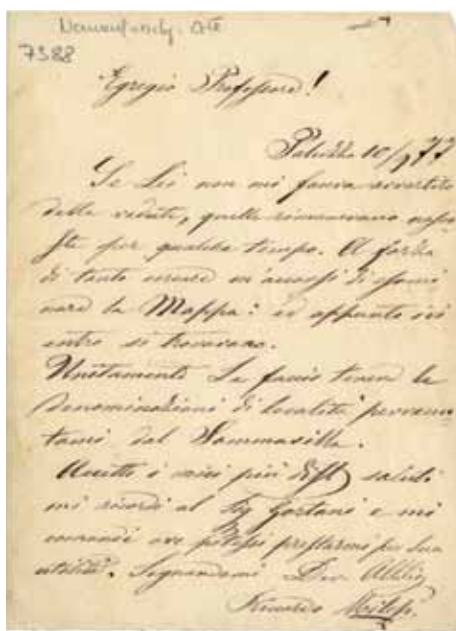 7388
Egregio Professore!
Paluzza 10/9 77
Se Lei non mi faceva avvertito
delle vedute, quelle rimanevano nasco
ste per qualche tempo. A forza
di tanto cercare m'accorsi di esami
nare la Mappa: ed appunto ivi
entro si trovavano.
Unitamente Le faccio tenere le
denominazioni di località pervenu
temi dal Sommavilla.
Accetti i miei più saluti
mi ricordi al Sig Gortani e mi
comandi ove potessi prestarmi per Sua
utilità. Segnandomi